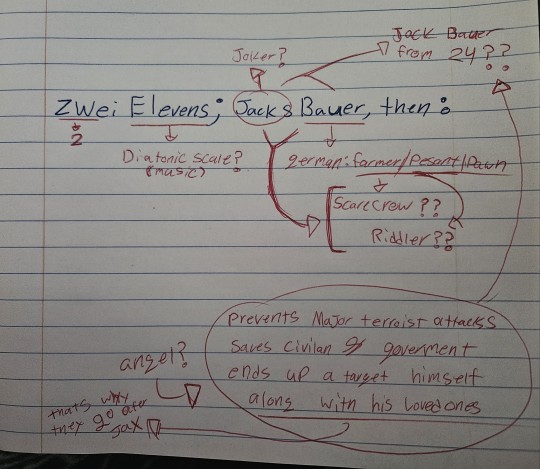 Jack Bauer
from 24??
Joker?
Zwei Elevens; Jacks Bauer, then:
2
Diatonic scale?
(music)
german: farmer/Pesant/Pawn
Scarecrow ??
Riddler??
prevents Major terroist attacks
Saves civilan & goverment
ends up a target himself
along with his loved ones
angel?
thats why
they go after
Jax